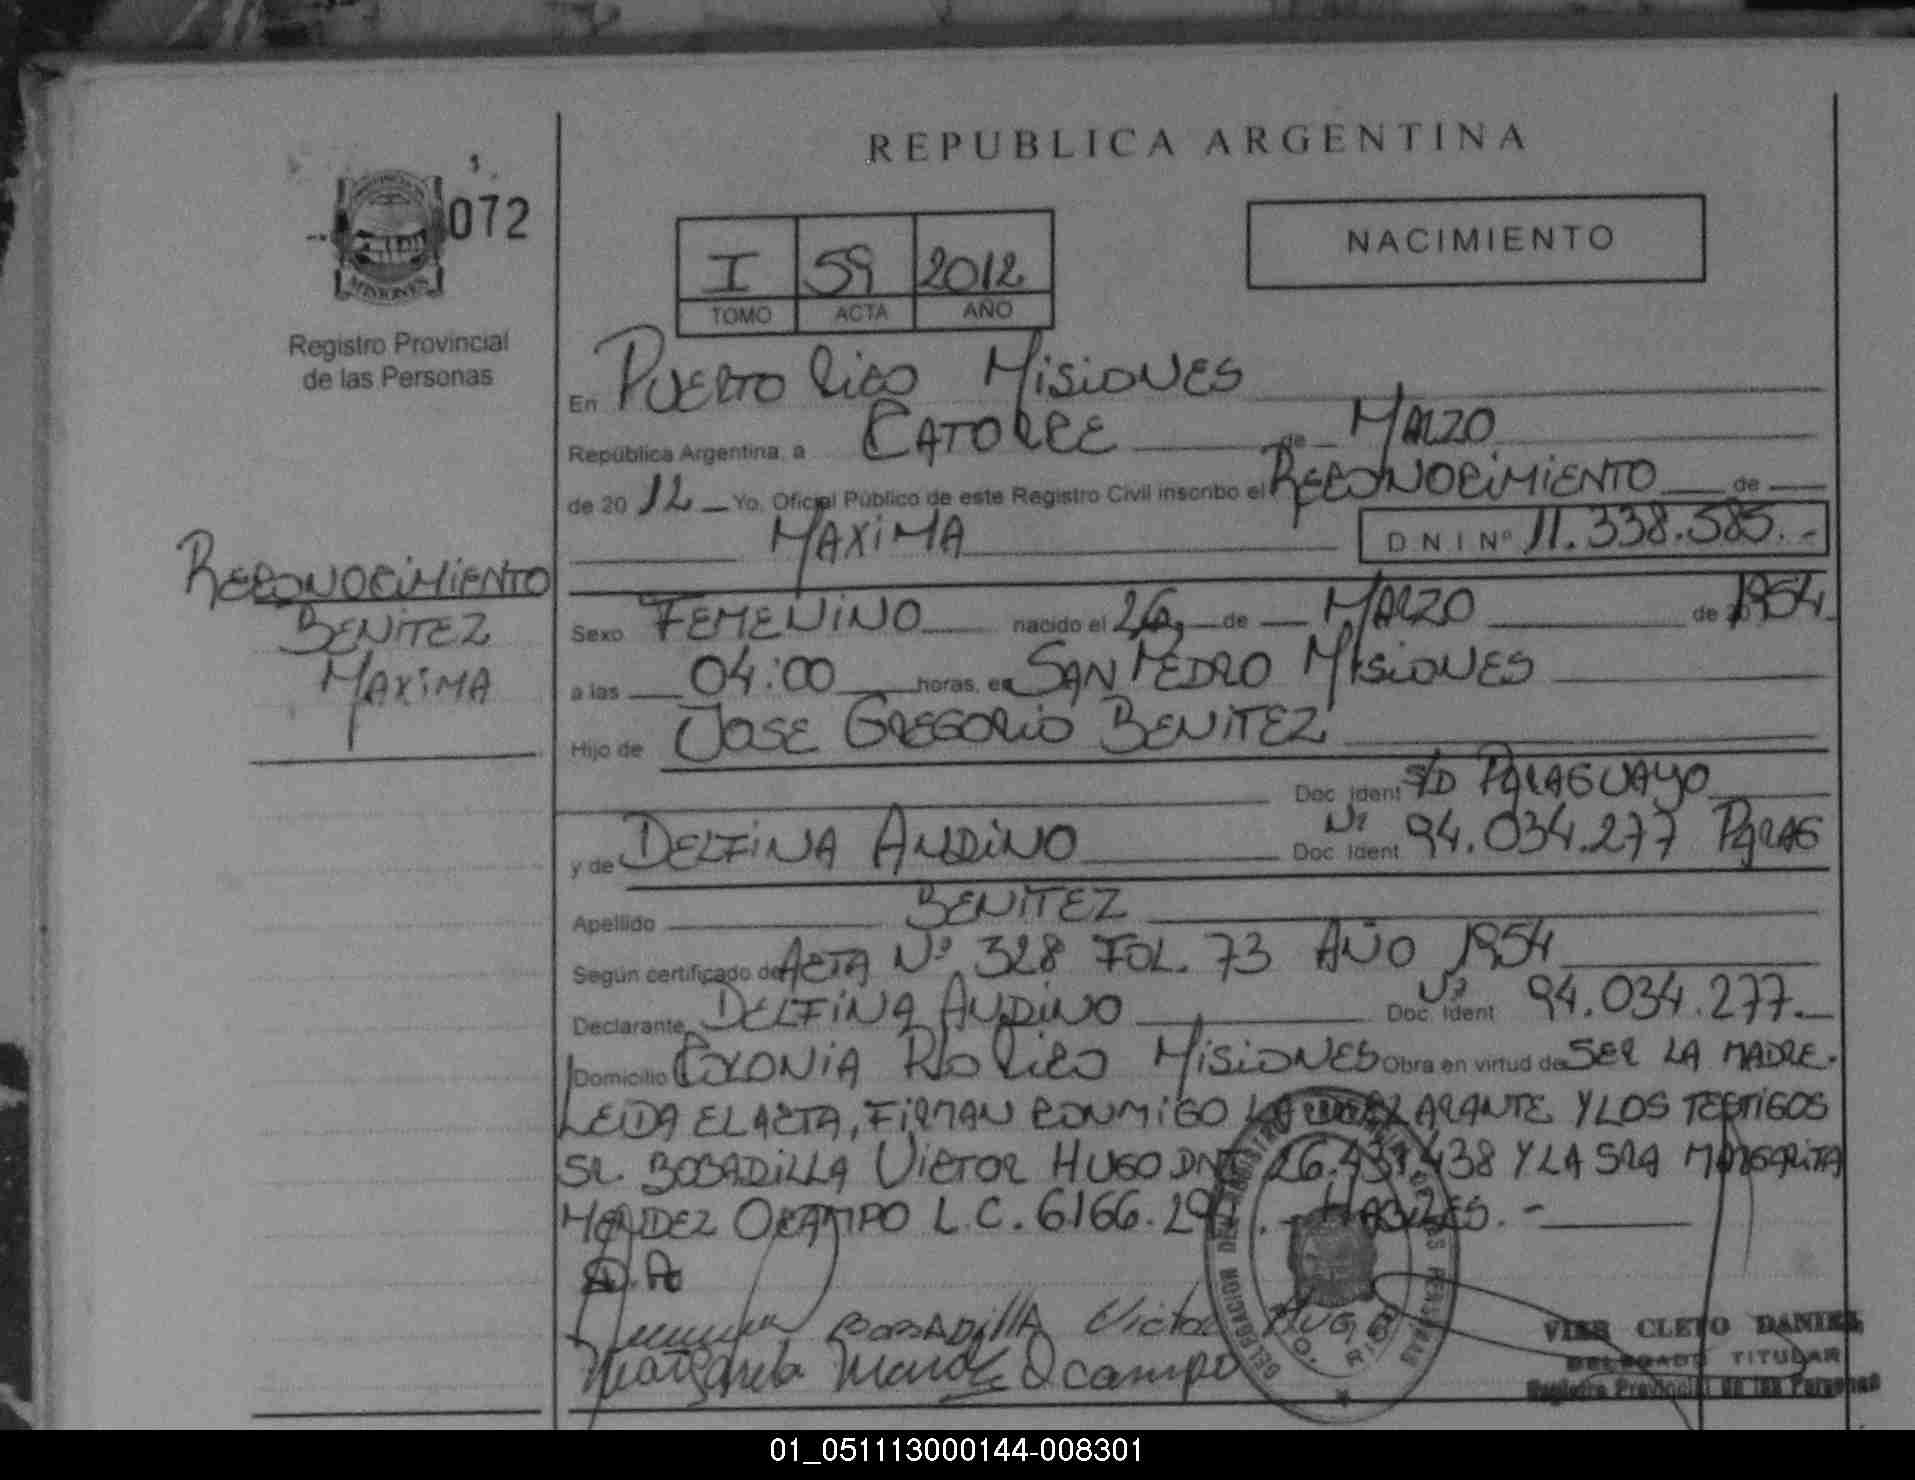 REPUBLICA ARGENTINA
072
MISIONES
Registro Provincial
de las Personas
NACIMIENTO
I 59 2012
TOMO ACTA AÑO
En PUERTO RICO MISIONES
República Argentina, a CATORCE de MARZO
de 20 12 Yo, Oficial Público de este Registro Civil inscribo el RECONOCIMIENTO de
MAXIMA D N I Nº 11.338.585.-
RECONOCIMIENTO
BENITEZ
MAXIMA
Sexo FEMENINO nacido el 26, de MARZO de 1954
a las 04:00 horas, en SAN PEDRO MISIONES
Hijo de JOSE GREGORIO BENITEZ
Doc. Ident S/D PARAGUAYO
y de DELFINA ANDINO Doc. Ident. Nº 94.034.277 PARAG
Apellido BENITEZ
Según certificado de ACTA Nº 328 FOL. 73 AÑO 1954
Declarante DELFINA ANDINO Doc. Ident Nº 94.034.277.
Domicilio COLONIA PTO RICO MISIONES Obra en virtud de SER LA MADRE.
LEIDA EL ACTA, FIRMAN CONMIGO LA DECLARANTE Y LOS TESTIGOS
SR. BOBADILLA VICTOR HUGO DNI 26. 438 Y LA SRA MARGARITA
MENDEZ OCAMPO L.C. 6166. HABILES.-
D. A
BOBADILLA Victor Hugo
Margarita Mendez Ocampo
VIER CLETO DANIEL
DELEGADO TITULAR
Registro Provincial de las Personas
01_051113000144-008301